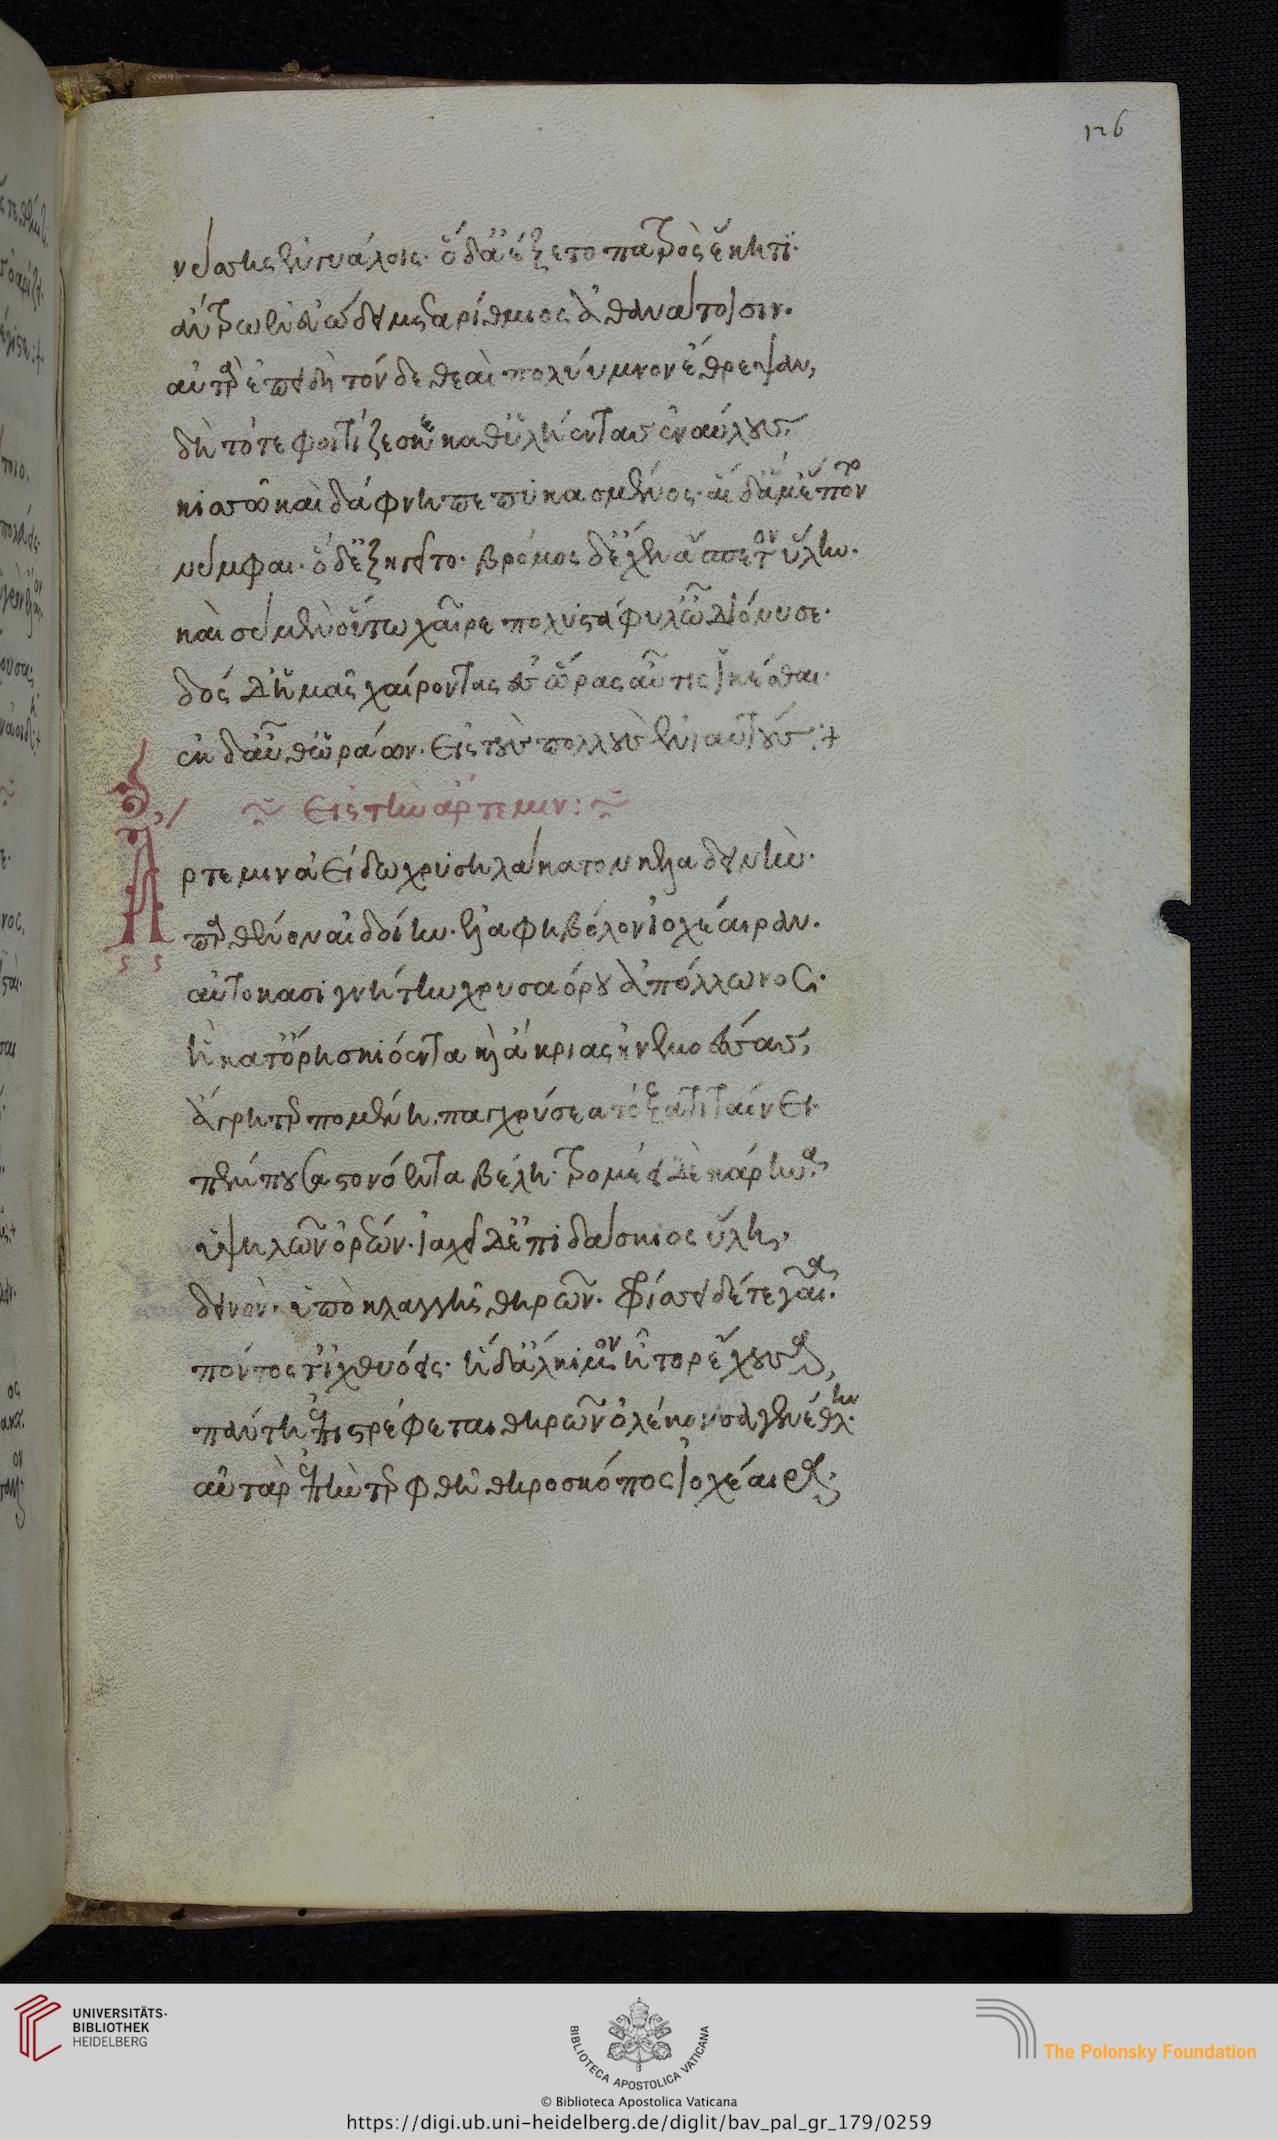 126
νύσης ἐν γυάλοις· ὁ δ' ἀέξετο πατρὸς ἕκητι·
ἄντρω ἐν εὐώδει μεταρίθμιος ἀθανάτοισιν.
αὐτὰρ ἐπειδὴ τόνδε θεαὶ πολύυμνον ἔθρεψαν,
δὴ τότε φοιτίζεσκε καθ' ὑλήεντας ἐναύλους·
κισσῶ καὶ δάφνη πεπυκασμένος· αἱ δ' ἅμ' ἕποντο
νύμφαι· ὁ δ' ἐξηγεῖτο· βρόμος δ' ἔχεν ἄσπετον ὕλην.
καὶ σὺ μὲν οὕτω χαῖρε πολυστάφυλ' ὦ Διόνυσε·
δὸς δ' ἡμᾶς χαίροντας ἐς ὥρας αὖτις ἱκέσθαι·
ἐκ δ' αὖθ' ὡράων· εἰς τοὺς πολλοὺς ἐνιαυτούς:+
Εἰς τὴν ἄρτεμιν:
Ἄρτεμιν ἀείδω χρυσηλάκατον κελαδεινήν·
παρθένον αἰδοίην· ἐλαφηβόλον ἰοχέαιραν.
αὐτοκασιγνήτην χρυσαόρου ἀπόλλωνος·
ἣ κατ' ὄρη σκιόεντα κὶ ἄκριας ἠνεμοέσσας,
ἄγρη τερπομένη. παγχρύσεα τόξα τιταίνει·
πέμπουσα στονόεντα βέλη· τρομέει δὲ κάρηνα
ὑψηλῶν ὀρέων· ἰαχεῖ δ' ἔπι δάσκιος ὕλη,
δεινὸν· ὑπὸ κλαγγῆς θηρῶν· φρίσσει δέ τε γαῖα·
πόντος τ' ἰχθυόεις· ἡ δ' ἄλκιμον ἦτορ ἔχουσα,
πάντη ἐπιστρέφεται θηρῶν ὀλέκουσα γενέθλην·
αὐτὰρ ἐπὴν τερφθῆ θηροσκόπος ἰοχέαιρα·
UNIVERSITÄTS-
BIBLIOTHEK
HEIDELBERG
BIBLIOTECA APOSTOLICA VATICANA
The Polonsky Foundation
© Biblioteca Apostolica Vaticana
https://digi.ub.uni-heidelberg.de/diglit/bav_pal_gr_179/0259